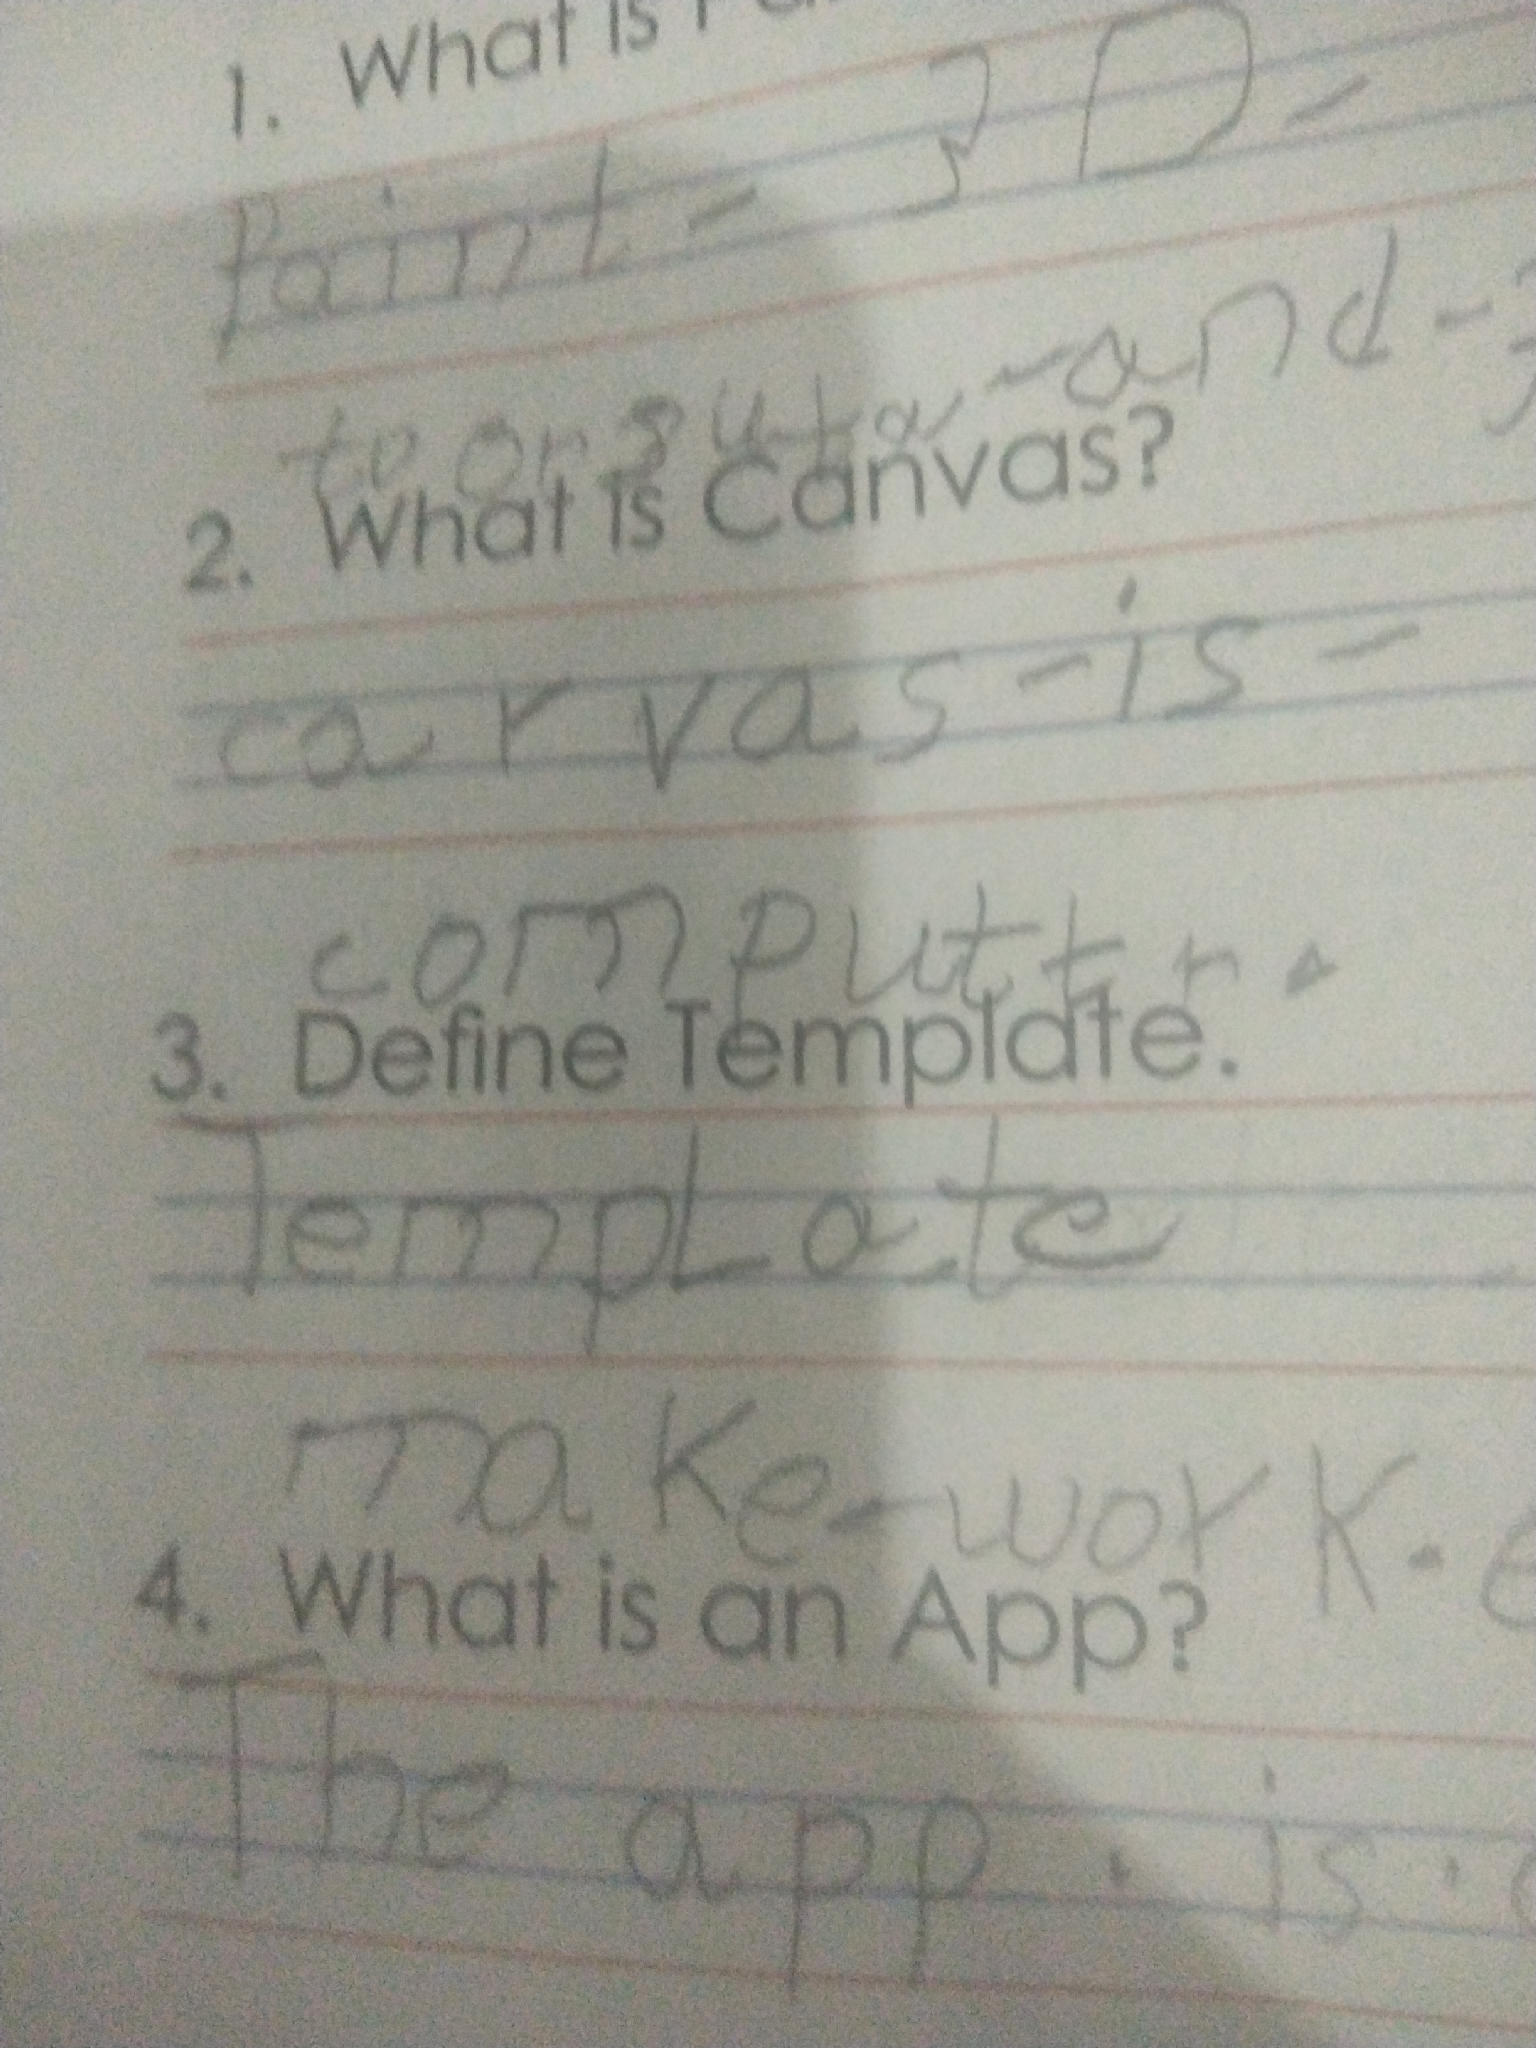 1. What is
Paint - 3D -
and -
2. What is Canvas?
carvas - is -
computtr.
3. Define Template.
TempLate
make - work.
4. What is an App?
The app. is.